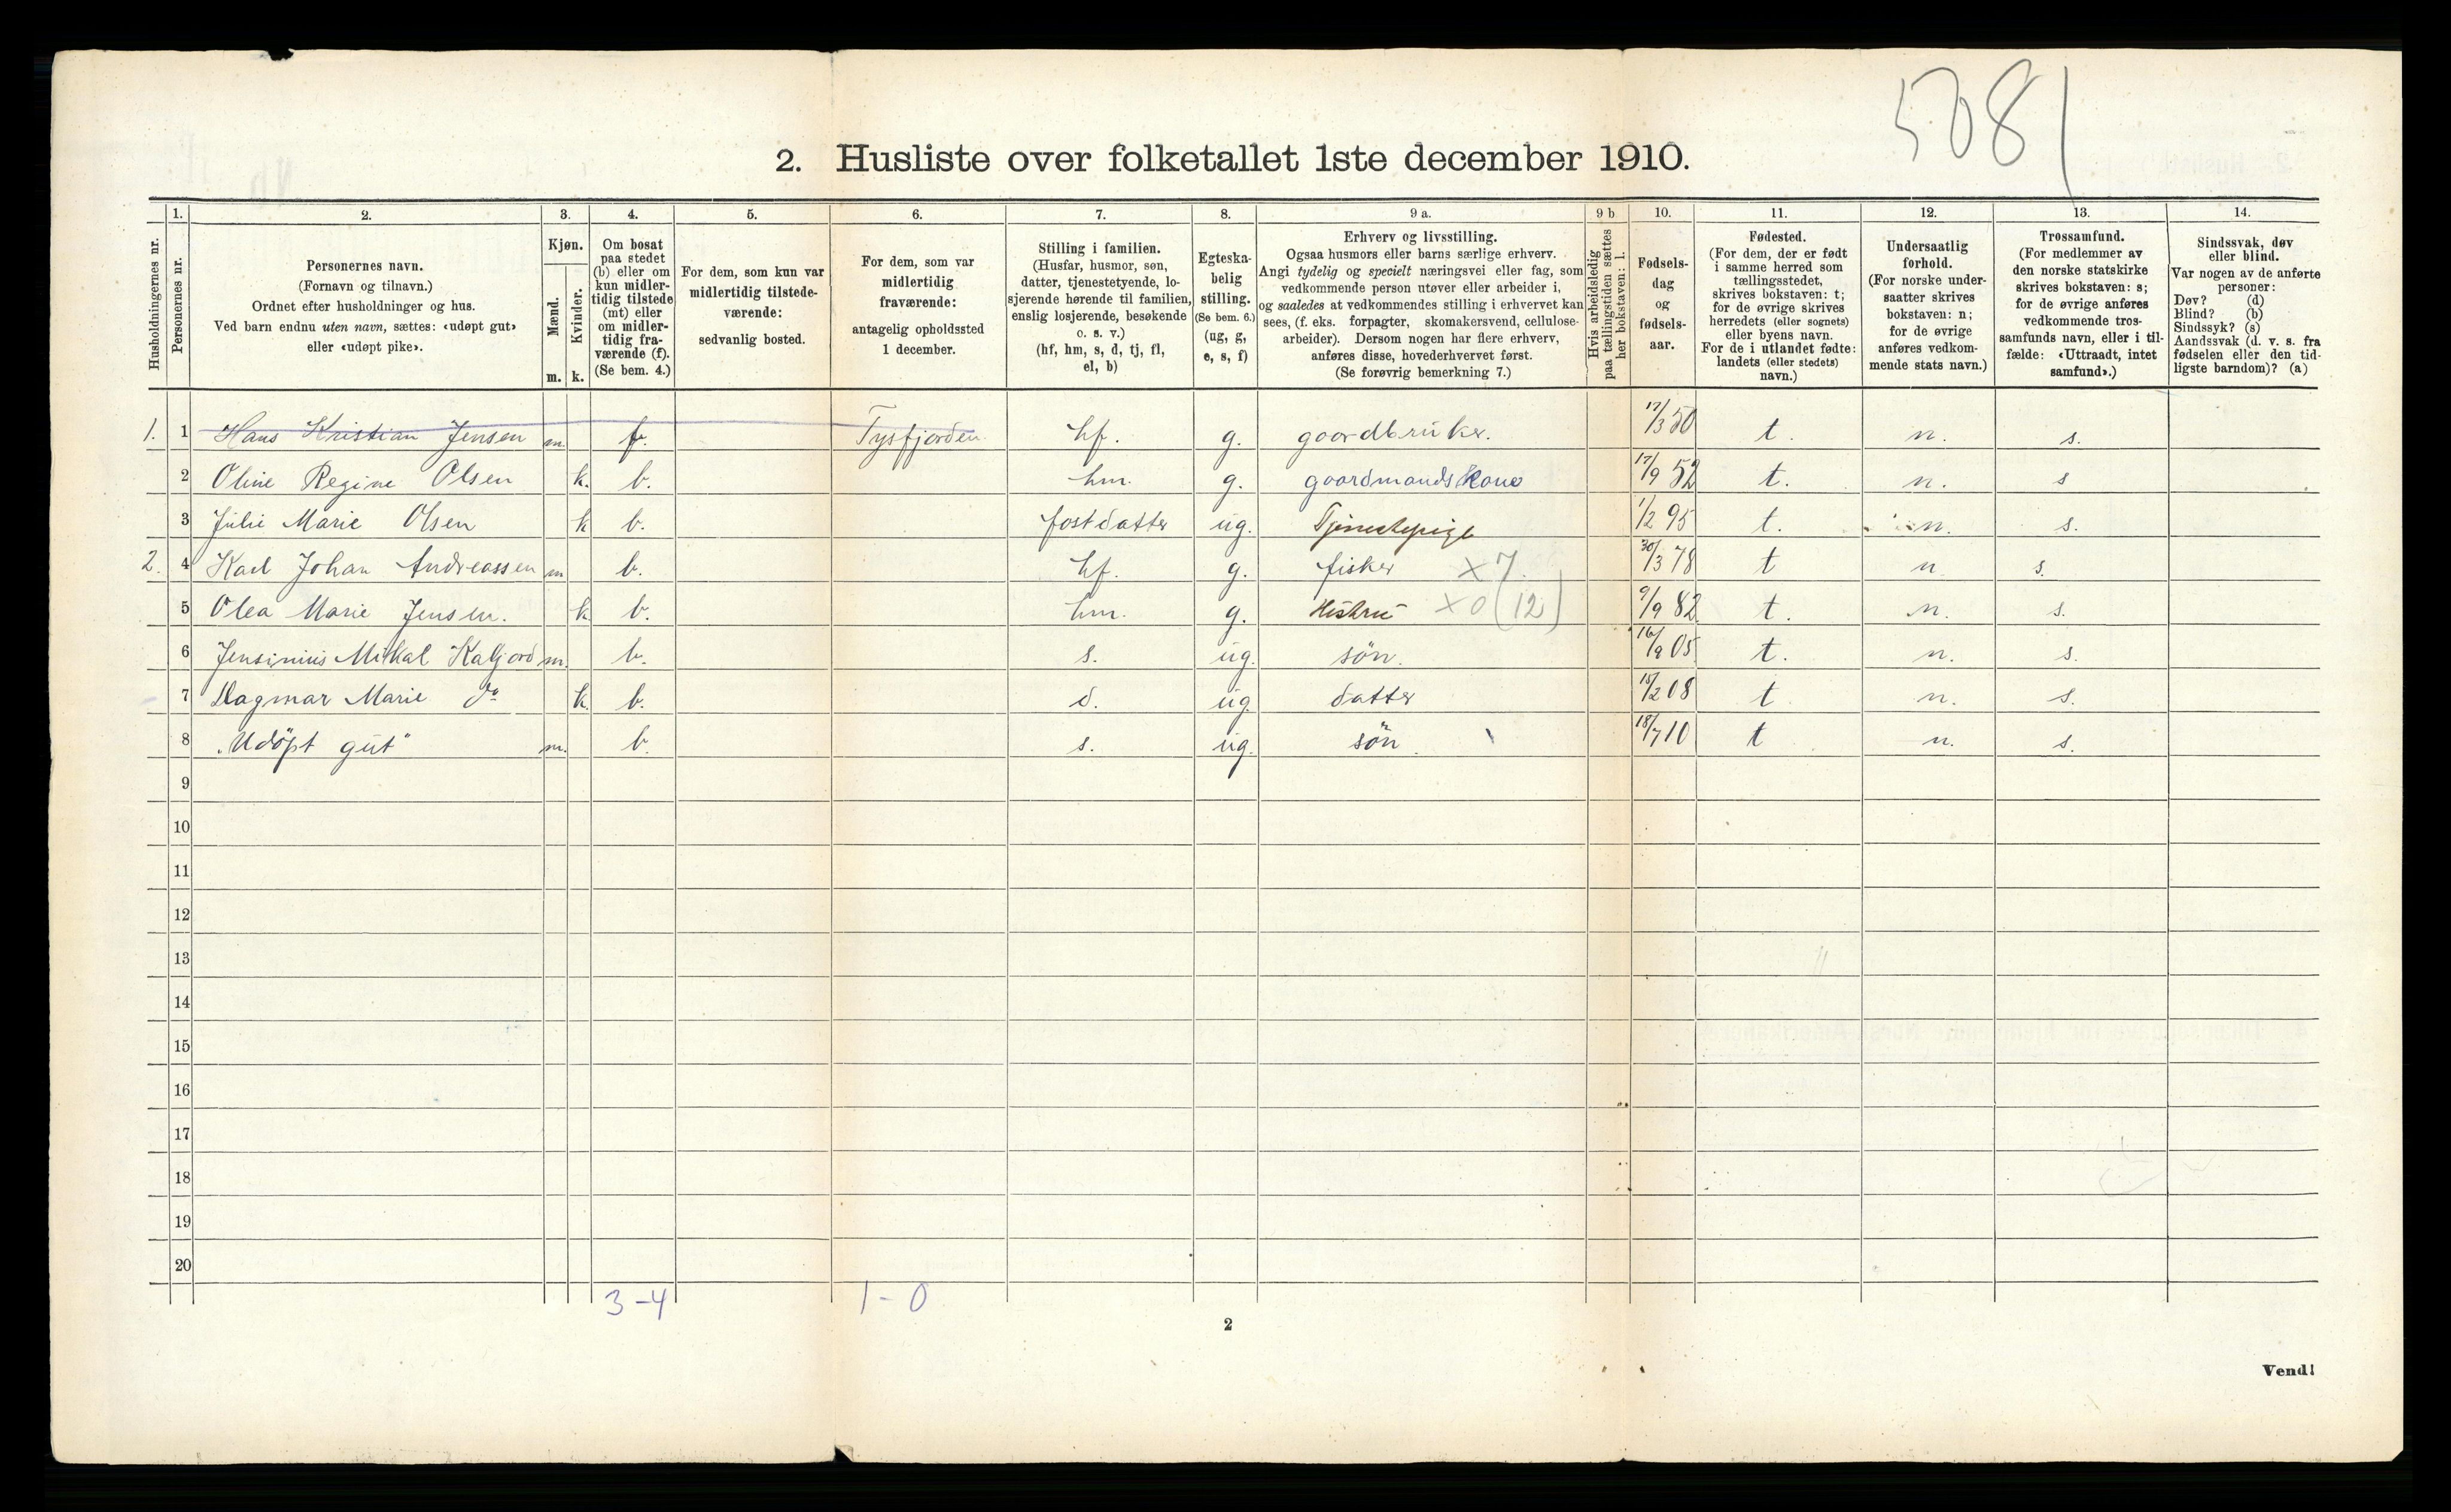 5081
2. Husliste over folketallet 1ste december 1910.
1. 2. 3. 4. 5. 6. 7. 8. 9 a. 9 b 10. 11. 12. 13. 14.
Husholdningernes nr.
Personernes nr.
Personernes navn.
(Fornavn og tilnavn.)
Ordnet efter husholdninger og hus.
Ved barn endnu uten navn, sættes: «udøpt gut»
eller «udøpt pike».
Kjøn.
Mænd.
Kvinder.
m. k.
Om bosat
paa stedet
(b) eller om
kun midler-
tidig tilstede
(mt) eller
om midler-
tidig fra-
værende (f).
(Se bem. 4.)
For dem, som kun var
midlertidig tilstede-
værende:
sedvanlig bosted.
For dem, som var
midlertidig
fraværende:
antagelig opholdssted
1 december.
Stilling i familien.
(Husfar, husmor, søn,
datter, tjenestetyende, lo-
sjerende hørende til familien,
enslig losjerende, besøkende
o. s. v.)
(hf, hm, s, d, tj, fl,
el, b)
Egteska-
belig
stilling.
(Se bem. 6.)
(ug, g,
e, s, f)
Erhverv og livsstilling.
Ogsaa husmors eller barns særlige erhverv.
Angi tydelig og specielt næringsvei eller fag, som
vedkommende person utøver eller arbeider i,
og saaledes at vedkommendes stilling i erhvervet kan
sees, (f. eks. forpagter, skomakersvend, cellulose-
arbeider). Dersom nogen har flere erhverv,
anføres disse, hovederhvervet først.
(Se forøvrig bemerkning 7.)
Hvis arbeidsledig
paa tællingstiden sættes
her bokstaven: l.
Fødsels-
dag
og
fødsels-
aar.
Fødested.
(For dem, der er født
i samme herred som
tællingsstedet,
skrives bokstaven: t;
for de øvrige skrives
herredets (eller sognets)
eller byens navn.
For de i utlandet fødte:
landets (eller stedets)
navn.)
Undersaatlig
forhold.
(For norske under-
saatter skrives
bokstaven: n;
for de øvrige
anføres vedkom-
mende stats navn.)
Trossamfund.
(For medlemmer av
den norske statskirke
skrives bokstaven: s;
for de øvrige anføres
vedkommende tros-
samfunds navn, eller i til-
fælde: «Uttraadt, intet
samfund».)
Sindssvak, døv
eller blind.
Var nogen av de anførte
personer:
Døv? (d)
Blind? (b)
Sindssyk? (s)
Aandssvak (d. v. s. fra
fødselen eller den tid-
ligste barndom)? (a)
1. 1 Hans Kristian Jensen m. f. Tysfjorden hf. g. gaardbruker. 17/3 50 t. n. s.
2 Oline Regine Olsen k. b. hm. g. gaardmandskone 17/9 52 t. n. s
3 Julie Marie Olsen k b. fostdatter ug. Tjenestepige 1/2 95 t. n. s.
2. 4 Karl Johan Andreassen m b. hf. g. fisker X7. 30/3 78 t n s.
5 Olea Marie Jensen. k b. hm. g. Hustru X0 (12) 9/9 82 t. n. s.
6 Jensinius Mikal Kalfjord m. b. s. ug. søn. 16/9 05 t. n. s.
7 Dagmar Marie do k. b. d. ug. datter 15/2 08 t n. s.
8 "Udöpt gut" m. b. s. ug. søn. 18/7 10 t n. s.
9
10
11
12
13
14
15
16
17
18
19
20
3-4 1-0
2
Vend!